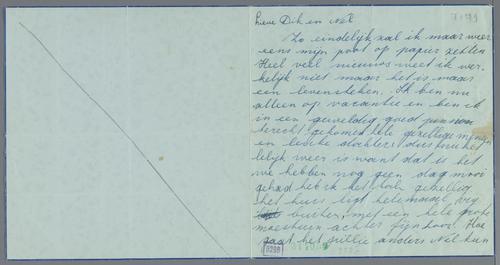 Lieve Dik en Nel
Zo eindelijk zal ik maar weer
eens mijn poot op papier zetten
Heel veel nieuws weet ik wer-
kelijk niet maar het is maar
een levensteken. Ik ben nu
alleen op vacantie en ben ik
in een geweldig goed pension
terecht gekomen hele gezellige mensen
en leuke dochters dus hue het
lelijk weer is want dat is het
we hebben nog geen dag mooi
gehad heb ik het toch gezellig
het huis ligt helemaal vrij
buiten, met een hele grote
achter fijn hoor. Hoe
gaat het jullie anders Nel kun
8298